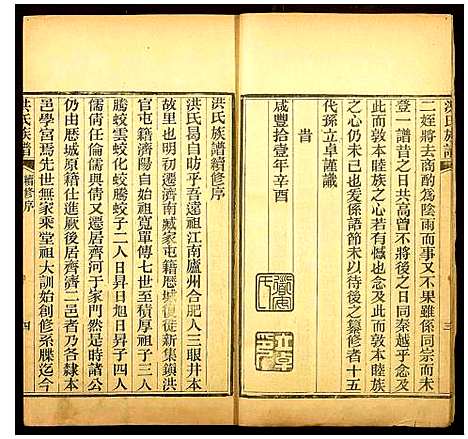 洪氏族譜
三
二姪將去商酌爲陰雨而又不果雖係同宗而未
登一譜昔之日共高曾不將後之日同秦越乎念及
此而敦本睦族之心於然動矣然予之敦本睦族
之心仍未已也爰係語節末以待後之纂修者十五
代孫立卓謹識
昔
咸豐拾壹年辛酉
洪氏族譜續修序
洪氏曷自昉乎吾遠祖江南廬州合肥人三眼井本
故里也明初遷濟南臧家屯籍厯城復徙新集鎮洪
官屯籍濟陽自始祖寬單傳七世至積厚祖子三人
騰蛟雲蛟化蛟騰蛟子二人日昇旭日昇子四人
儒倩任倫儒與倩又遷居齊河于家門然是時諸公
仍由厯城原籍仕進厥後居齊濟二邑者乃各隸本
邑學宮焉先世無家乘堂祖大訓始創修系牒迄今
洪氏族譜
續修序
四